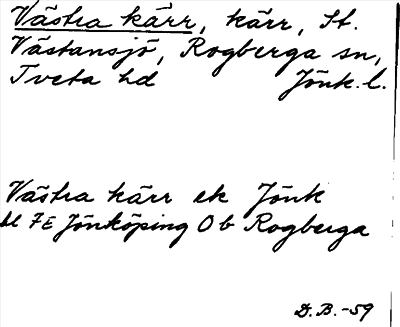 Västra kärr, kärr, St.
Västansjö, Rogberga sn,
Tveta hd Jönk. l.
Västra kärr ek Jönk
bl 7E Jönköping O b Rogberga
D.B.-59